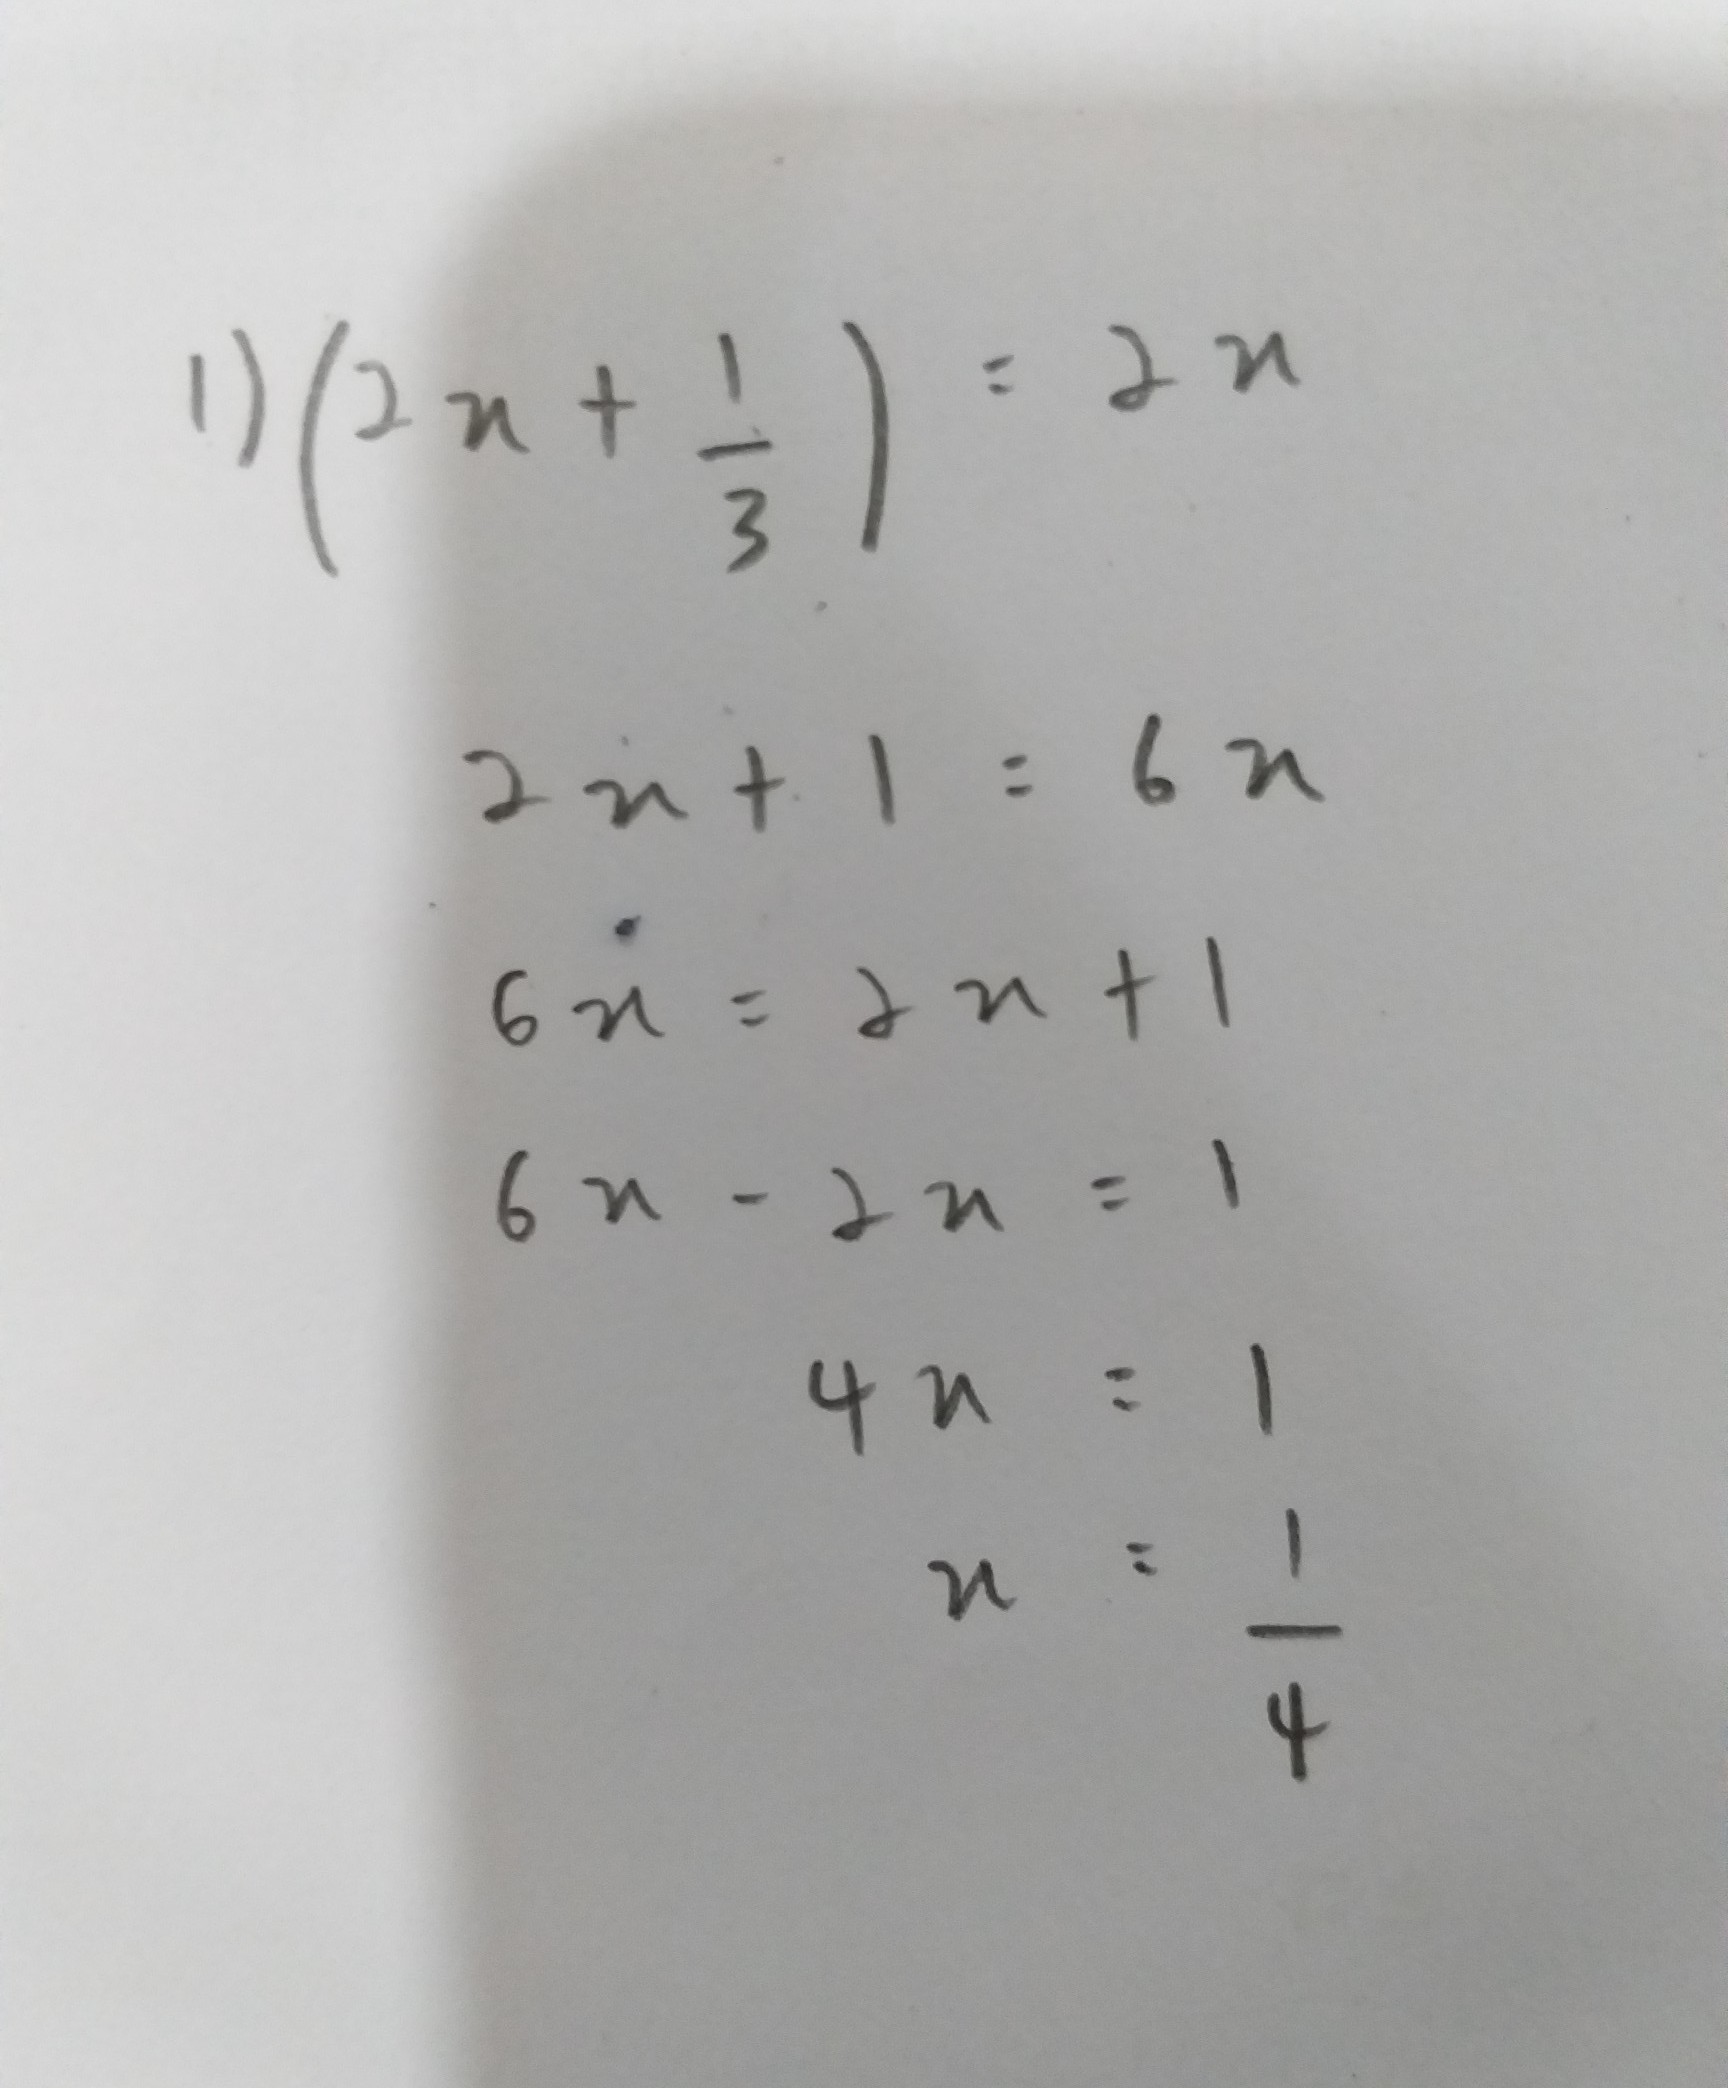 1) (2x + 1/3) = 2x
2x + 1 = 6x
6x = 2x + 1
6x - 2x = 1
4x = 1
x = 1/4